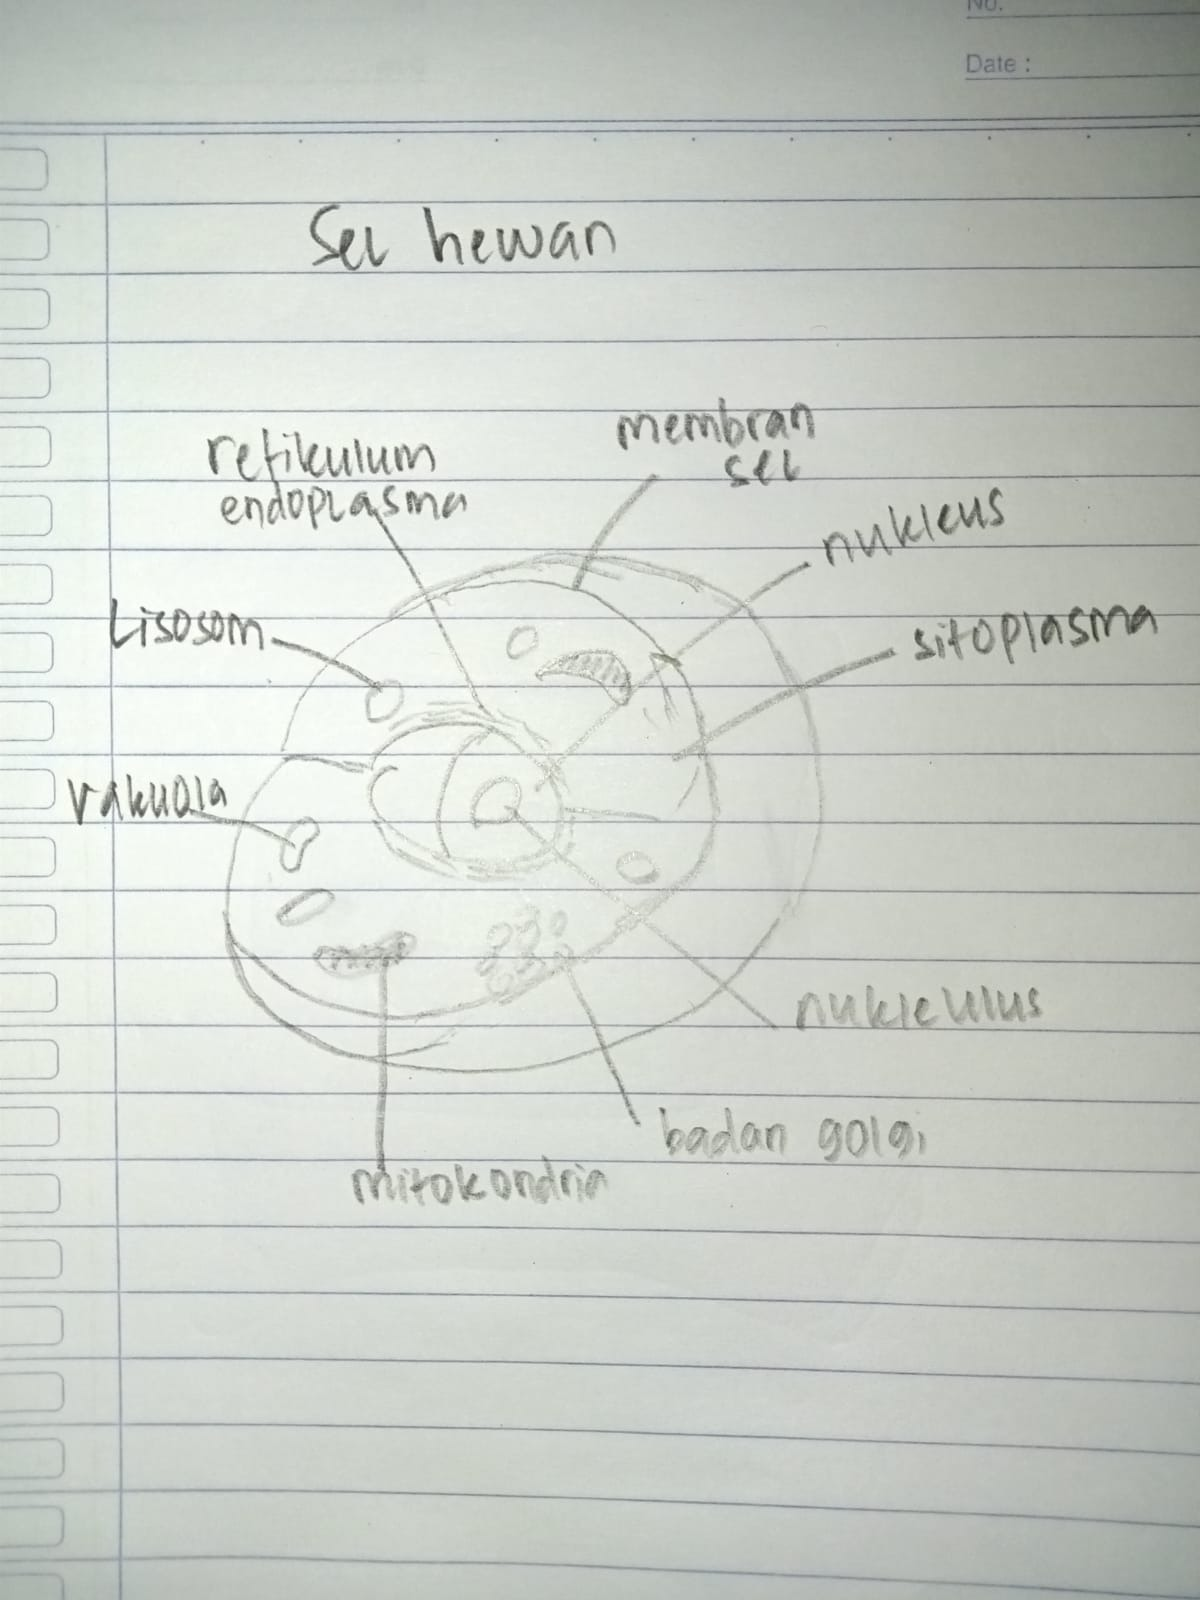 No.
Date :
Sel hewan
membran
sel
retikulum
endoplasma
nukleus
Lisosom
sitoplasma
vakuola
nukleulus
badan golgi
mitokondria